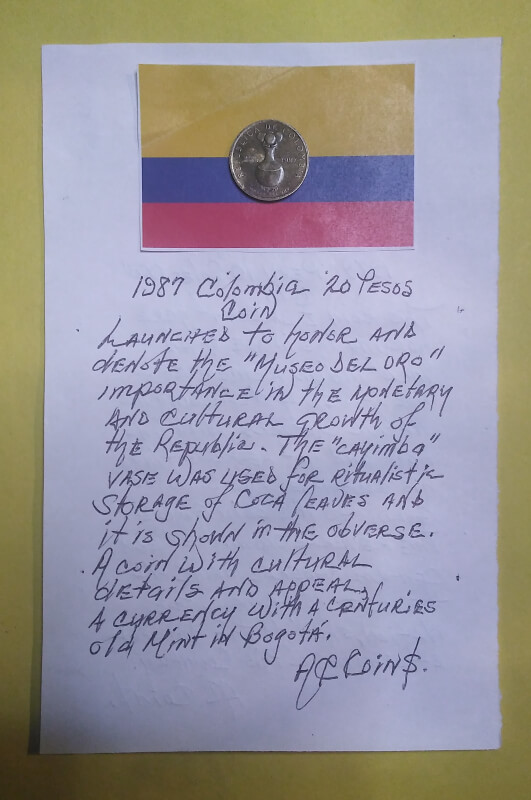 REPUBLICA DE COLOMBIA
1987 Colombia 20 Pesos
Coin
Launched to honor and
denote the "Museo del Oro"
importance in the monetary
and cultural growth of
the Republic. The "cayimba"
vase was used for ritualistic
storage of coca leaves and
it is shown in the obverse.
A coin with cultural
details and appeal,
A currency with a centuries
old Mint in Bogotá.
Coin$.